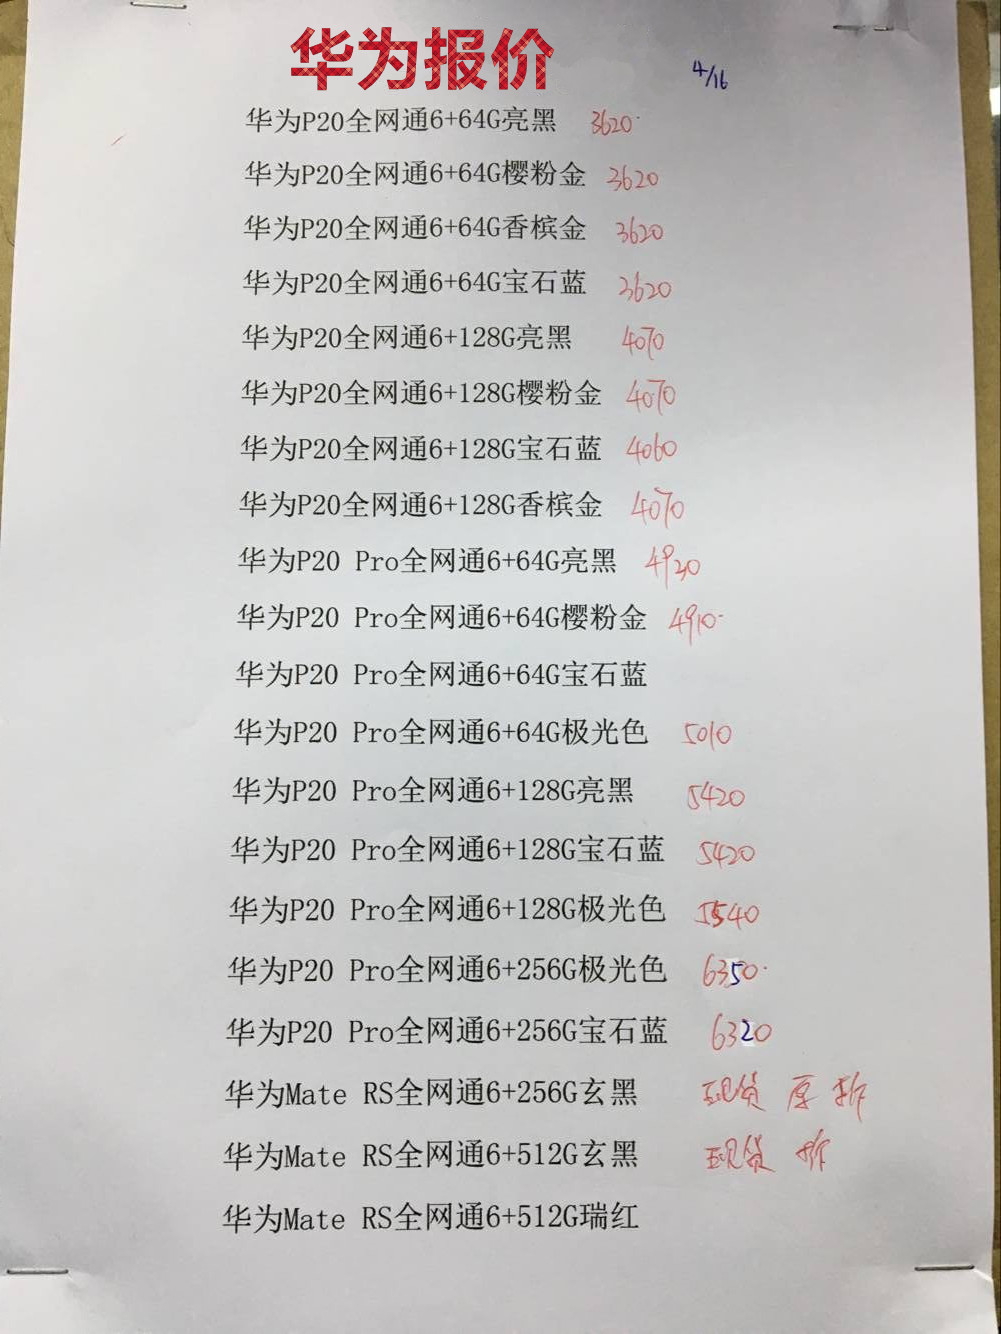 华为报价
4/16
华为P20全网通6+64G亮黑 3620
华为P20全网通6+64G樱粉金 3620
华为P20全网通6+64G香槟金 3620
华为P20全网通6+64G宝石蓝 3620
华为P20全网通6+128G亮黑 4070
华为P20全网通6+128G樱粉金 4070
华为P20全网通6+128G宝石蓝 4060
华为P20全网通6+128G香槟金 4070
华为P20 Pro全网通6+64G亮黑 4920
华为P20 Pro全网通6+64G樱粉金 4910
华为P20 Pro全网通6+64G宝石蓝
华为P20 Pro全网通6+64G极光色 5010
华为P20 Pro全网通6+128G亮黑 5420
华为P20 Pro全网通6+128G宝石蓝 5420
华为P20 Pro全网通6+128G极光色 5540
华为P20 Pro全网通6+256G极光色 6350
华为P20 Pro全网通6+256G宝石蓝 6320
华为Mate RS全网通6+256G玄黑 现货 厚 拆
华为Mate RS全网通6+512G玄黑 现货 拆
华为Mate RS全网通6+512G瑞红